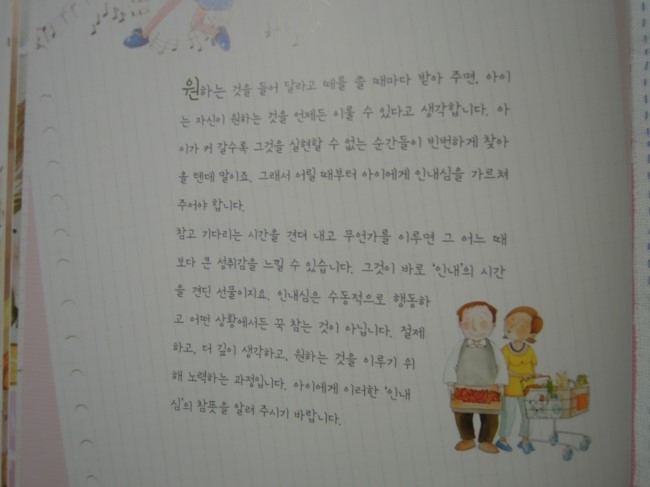 원하는 것을 들어 달라고 떼를 쓸 때마다 받아 주면, 아이
는 자신이 원하는 것을 언제든 이룰 수 있다고 생각합니다. 아
이가 커 갈수록 그것을 실현할 수 없는 순간들이 빈번하게 찾아
올 텐데 말이죠. 그래서 어릴 때부터 아이에게 인내심을 가르쳐
주어야 합니다.
참고 기다리는 시간을 견뎌 내고 무언가를 이루면 그 어느 때
보다 큰 성취감을 느낄 수 있습니다. 그것이 바로 ‘인내’의 시간
을 견딘 선물이지요. 인내심은 수동적으로 행동하
고 어떤 상황에서든 꾹 참는 것이 아닙니다. 절제
하고, 더 깊이 생각하고, 원하는 것을 이루기 위
해 노력하는 과정입니다. 아이에게 이러한 ‘인내
심’의 참뜻을 알려 주시기 바랍니다.